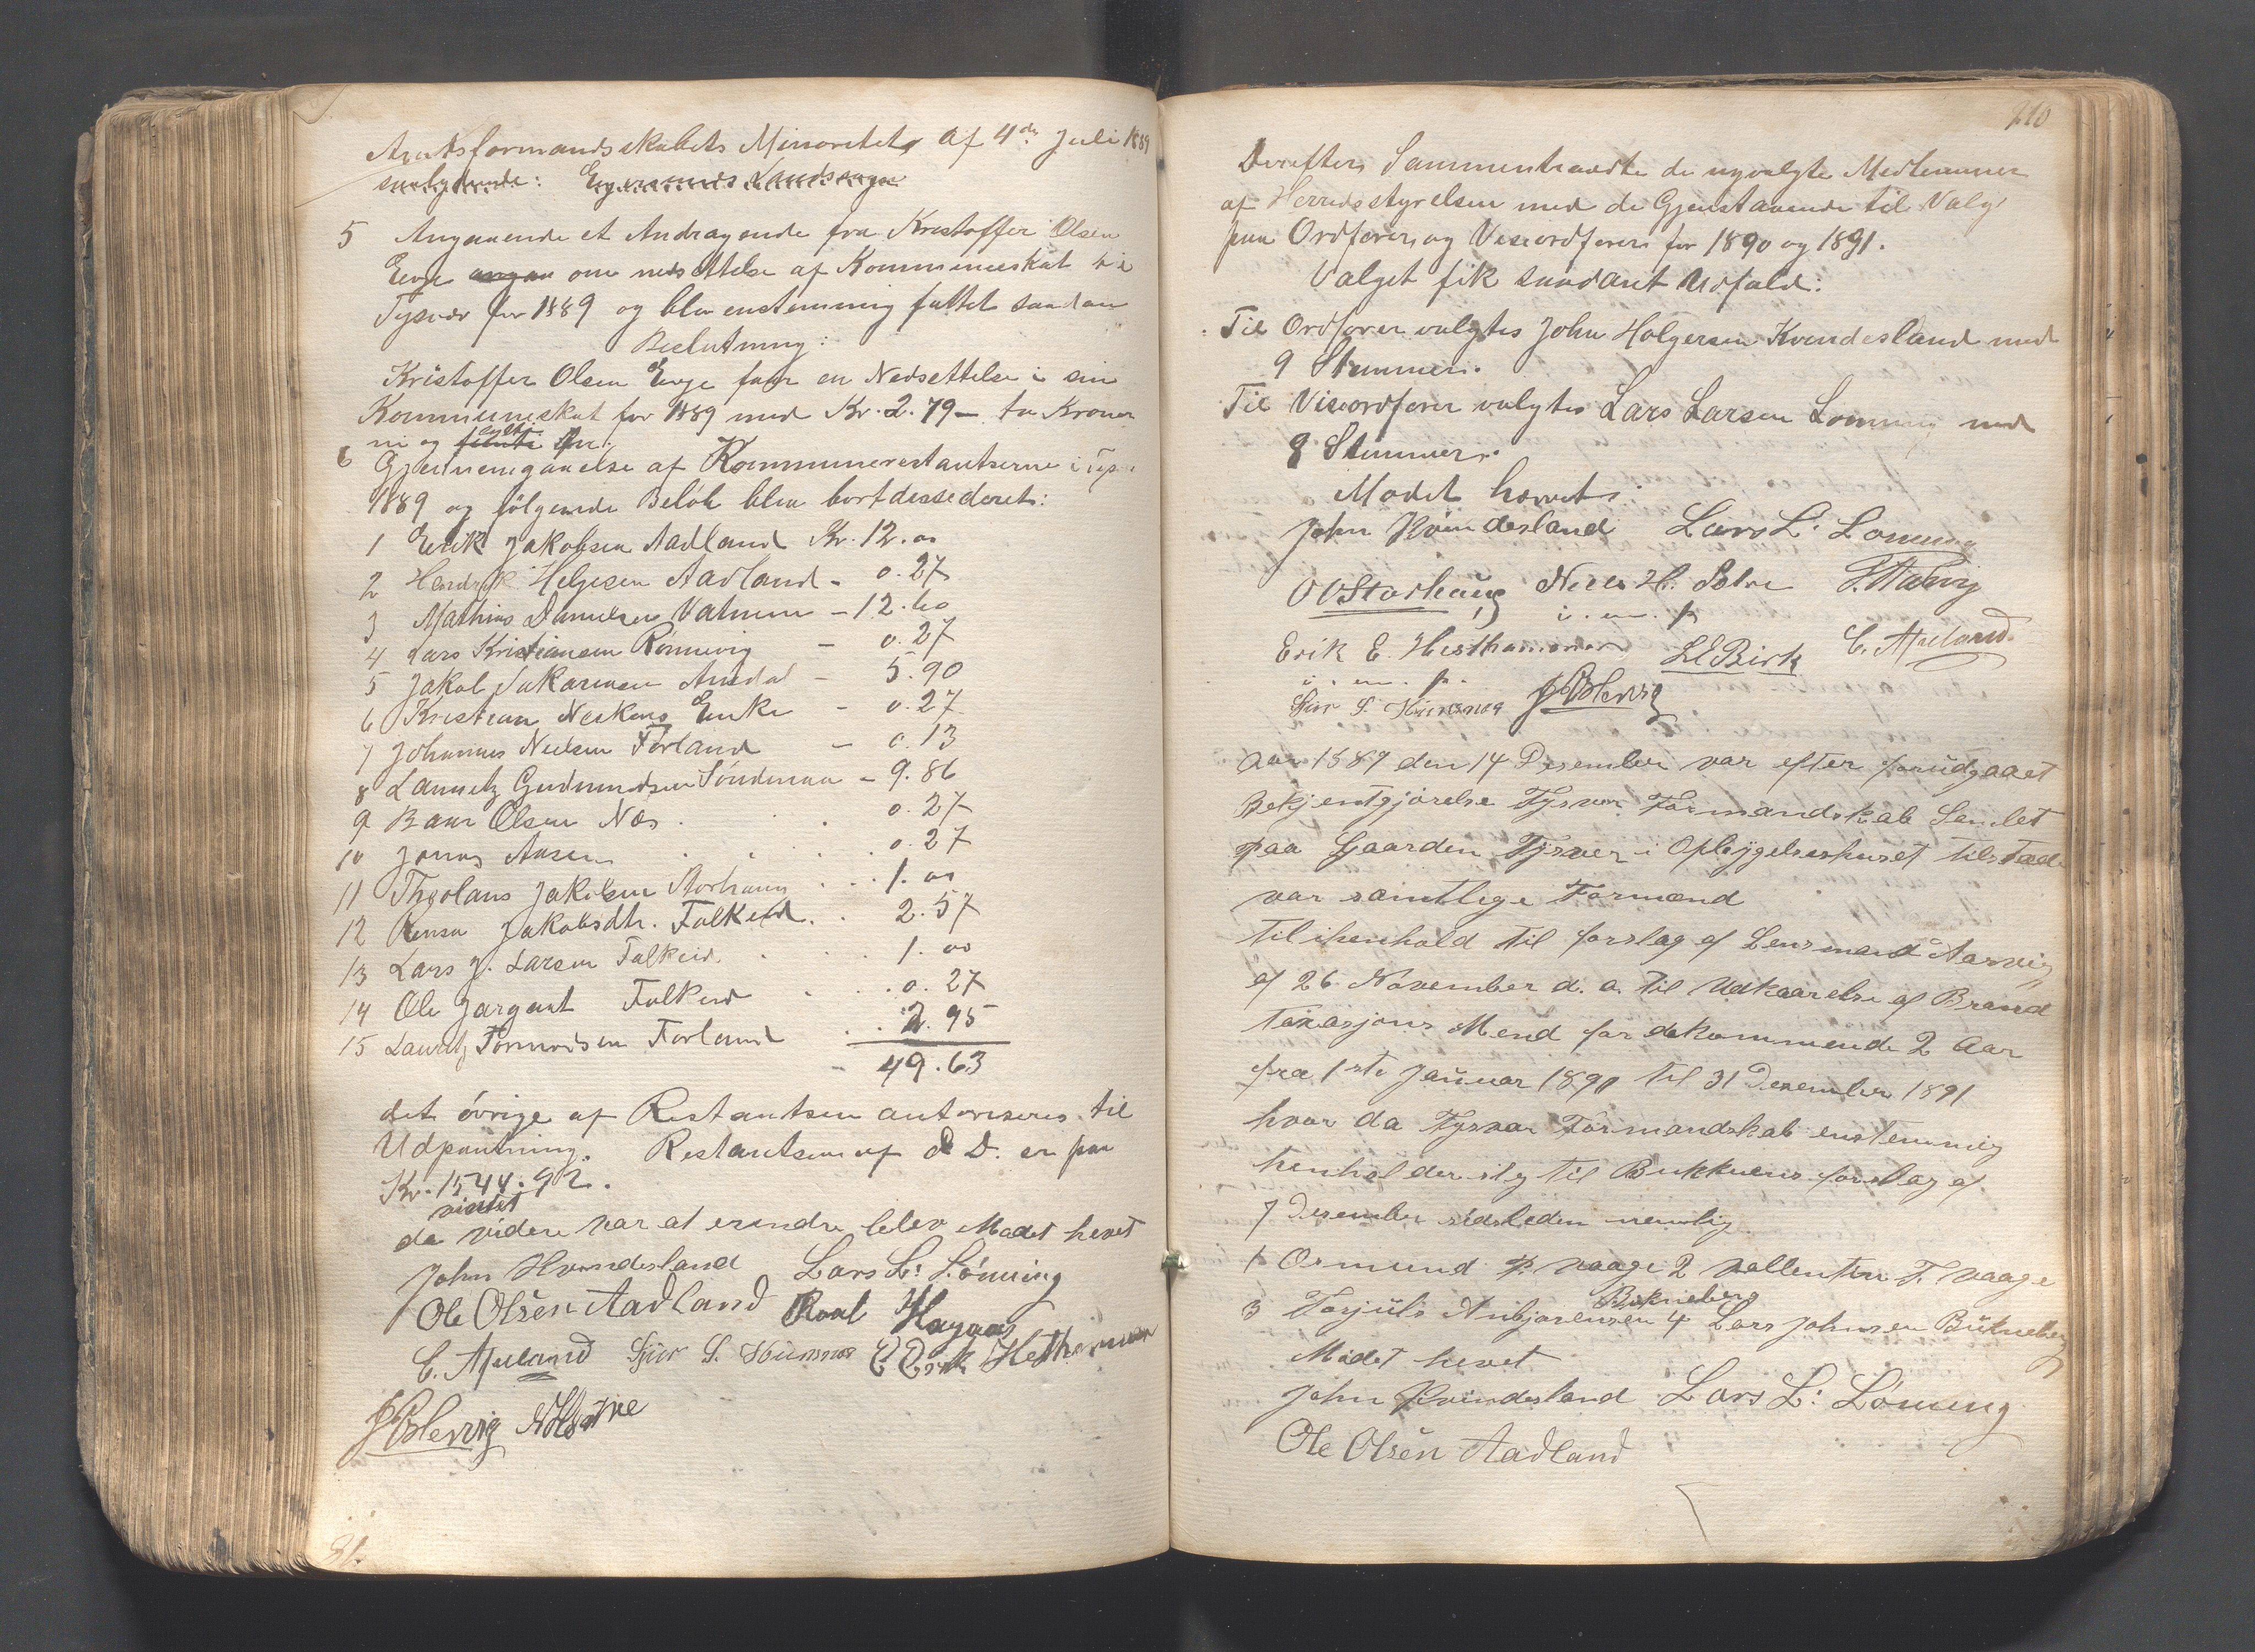 Amtsformandskabets Minoritets af 4de Juli 1889
saalydende: Egersunds Landsogn
5 Angaaende et Andragende fra Kristoffer Olsen
Eeje angaa om nedsettelse af Kommuneskat til
Tysvær for 1889 og blev enstemmig fattet saadan
Beslutning:
Kristoffer Olsen Eeje faar en Nedsettelse i sin
Kommuneskat for 1889 med Kr. 2.79 - to Kroner
ni og sytti Øre.
6 Gjennemgaaelse af Kommunerestantserne i Tys.
1889 og følgende Beløb blev bortdessederet:
1 Erik Jakobsen Aadland Kr. 12.00
2 Hendrik Helgesen Aadland - 0.27
3 Mathias Danielsen Vatnem - 12.60
4 Lars Kristiansen Rønnevig - 0.27
5 Jakob Sakariasen Aredal - 5.90
6 Kristian Neskens Eeike - 0.27
7 Johannes Nielsen Førland - 0.13
8 Lauritz Gudmundsen Søndenaa - 9.86
9 Baar Olsen Næs . . 0.27
10 Jonas Aasen . . . . 0.27
11 Theolaus Jakobsen Storhaug . . . 1.00
12 Rensa Jakobsdtr. Falkeid . . 2.57
13 Lars J. Larsen Falkeid . . . 1.00
14 Ole Jargent Falkeid . . . 0.27
15 Lauritz Tormodsen Førland . . 2.95
- 49.63
det øvrige af Restantsen autoriseres til
Udpantning. Restantsen af d D. er paa
Kr. 1544.92.
vintet
da videre var at erindre blev Mødet hevet
John Kvindesland Lars L: Lønning
Ole Olsen Aadland Roal Høynaas
C. Apeland Sjur S. Hüusnes E Erik Hesthammer
JBleivig NHSølve
210
Derefter Sammentraadte de nyvalgte Medlemmer
af Herredsstyrelsen med de Gjenstaaende til Valg
paa Ordfører og Viseordfører for 1890 og 1891.
Valget fik saadant Udfald:
Til Ordfører valgtes John Holgersen Kvindesland med
9 Stemmer.
Til Viseordfører valgtes Lars Larsen Lønning med
8 Stemmer.
Mødet hævet:
John Kvindesland Lars L: Lønning
O V Storhaug Niels H. Sølve
i. m. p.
Erik E. Hesthammer L E Birk C. Apeland
i. m. p.
Sjur S. Hüusnes JBleivig
Aar 1889 den 14 Desember var efter forudgaaet
Bekjentgjørelse Tysvær Formandskab Samlet
paa Gaarden Tysver i Opløgelseshuset tilstæde
var samtlige Formænd
Til ihenhold til forslag af Lensmand Aarvig
af 26 November d. a. til Udkaarelse af Brand
Taxasjons Mend for dekommende 2 Aar
fra 1ste Januar 1890 til 31 Desember 1891
hvor da Tysvær Formandskab enstemmig
henholder sig til Bukkuens forslag af
7 Desember sidsleden nemlig
1 Osmund P. vaage 2 vallentin T. vaage
Bükneberg
3 Torjuls Anbjørensen 4 Lars Johnsen Bükneberg
Mødet hevet
John Kvindesland Lars L: Lønning
Ole Olsen Aadland